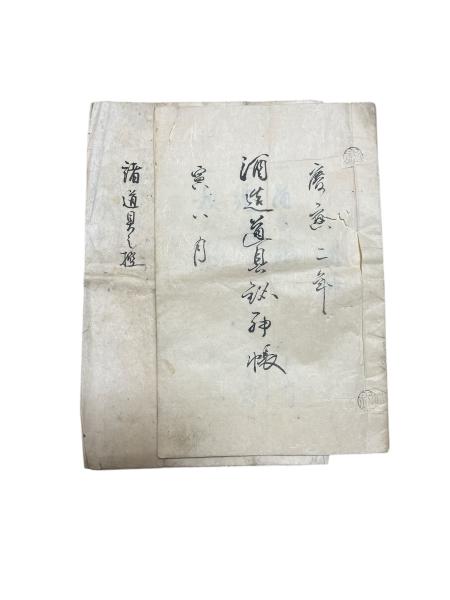 慶應二年
酒造道具帳
寅八月
諸道具之控